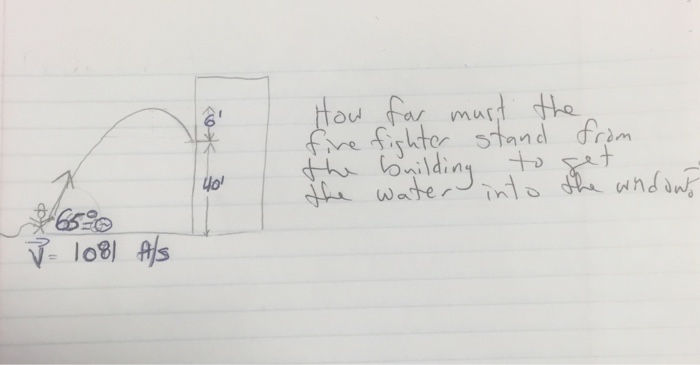 How far must the
6'
fire fighter stand from
the building to get
40'
the water into the window?
65° = θ
V = 1081 ft/s